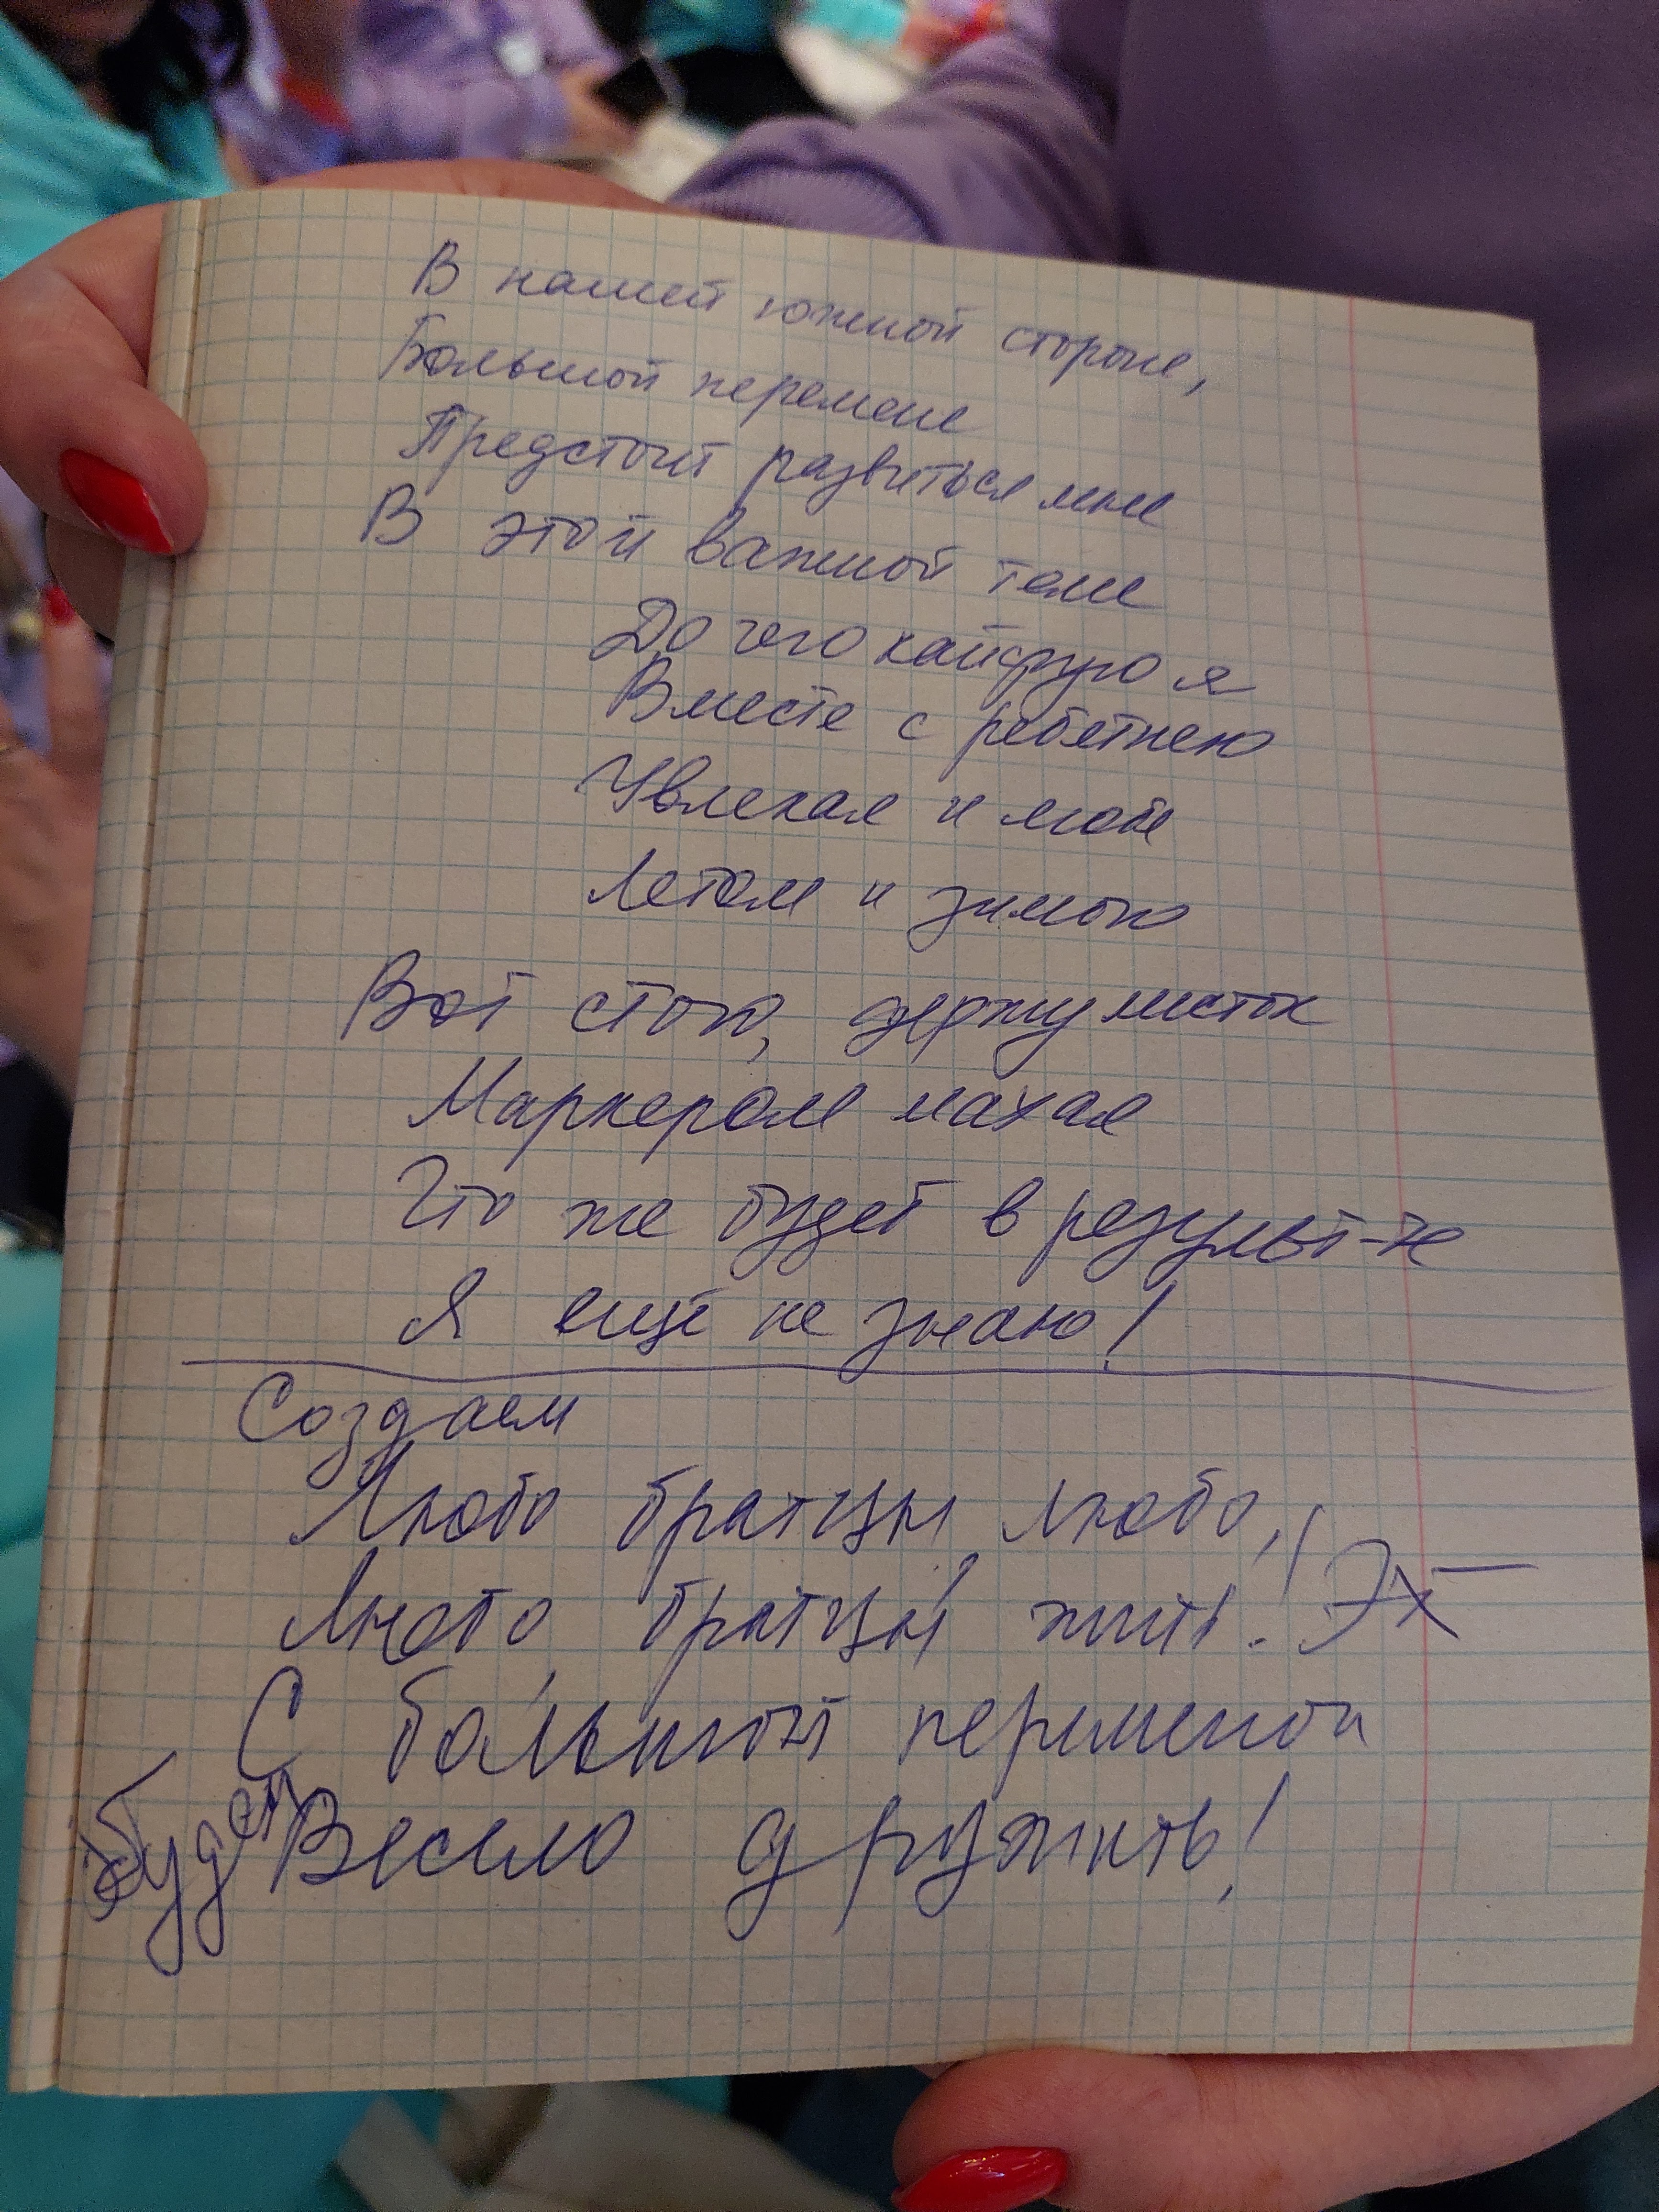 В нашей южной стороне,
Большой перемене
Предстоит развиться мне
В этой важной теме
До чего кайфую я
Вместе с ребятнею
Увлекая и любя
Летом и зимою
Вот стою, держу листок
Маркером махая
Что же будет в результ-те
Я ещё не знаю!
Создаем
Любо братцы, любо,
Любо, братцы, жить! Эх
С большой переменой
будем Весело дружить!